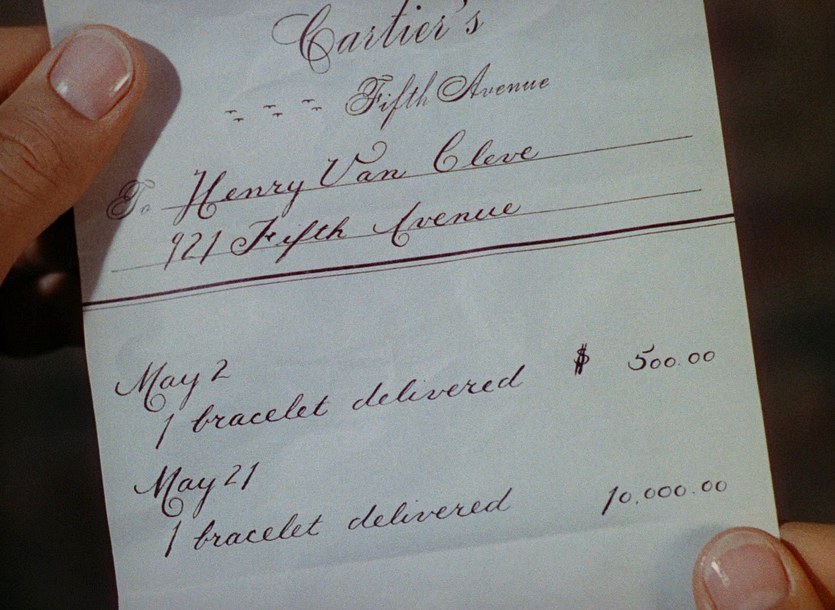 Cartier's
Fifth Avenue
To Henry Van Cleve
921 Fifth Avenue
May 2
1 bracelet delivered $ 500.00
May 21
1 bracelet delivered 10.000.00